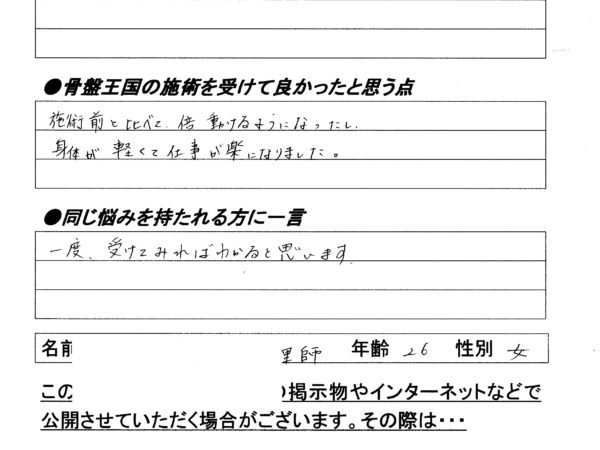 ●骨盤王国の施術を受けて良かったと思う点
施術前と比べて、倍動けるようになったし、
身体が軽くて仕事が楽になりました。
●同じ悩みを持たれる方に一言
一度、受けてみればわかると思います。
名前 理師 年齢 26 性別 女
この の掲示物やインターネットなどで
公開させていただく場合がございます。その際は・・・